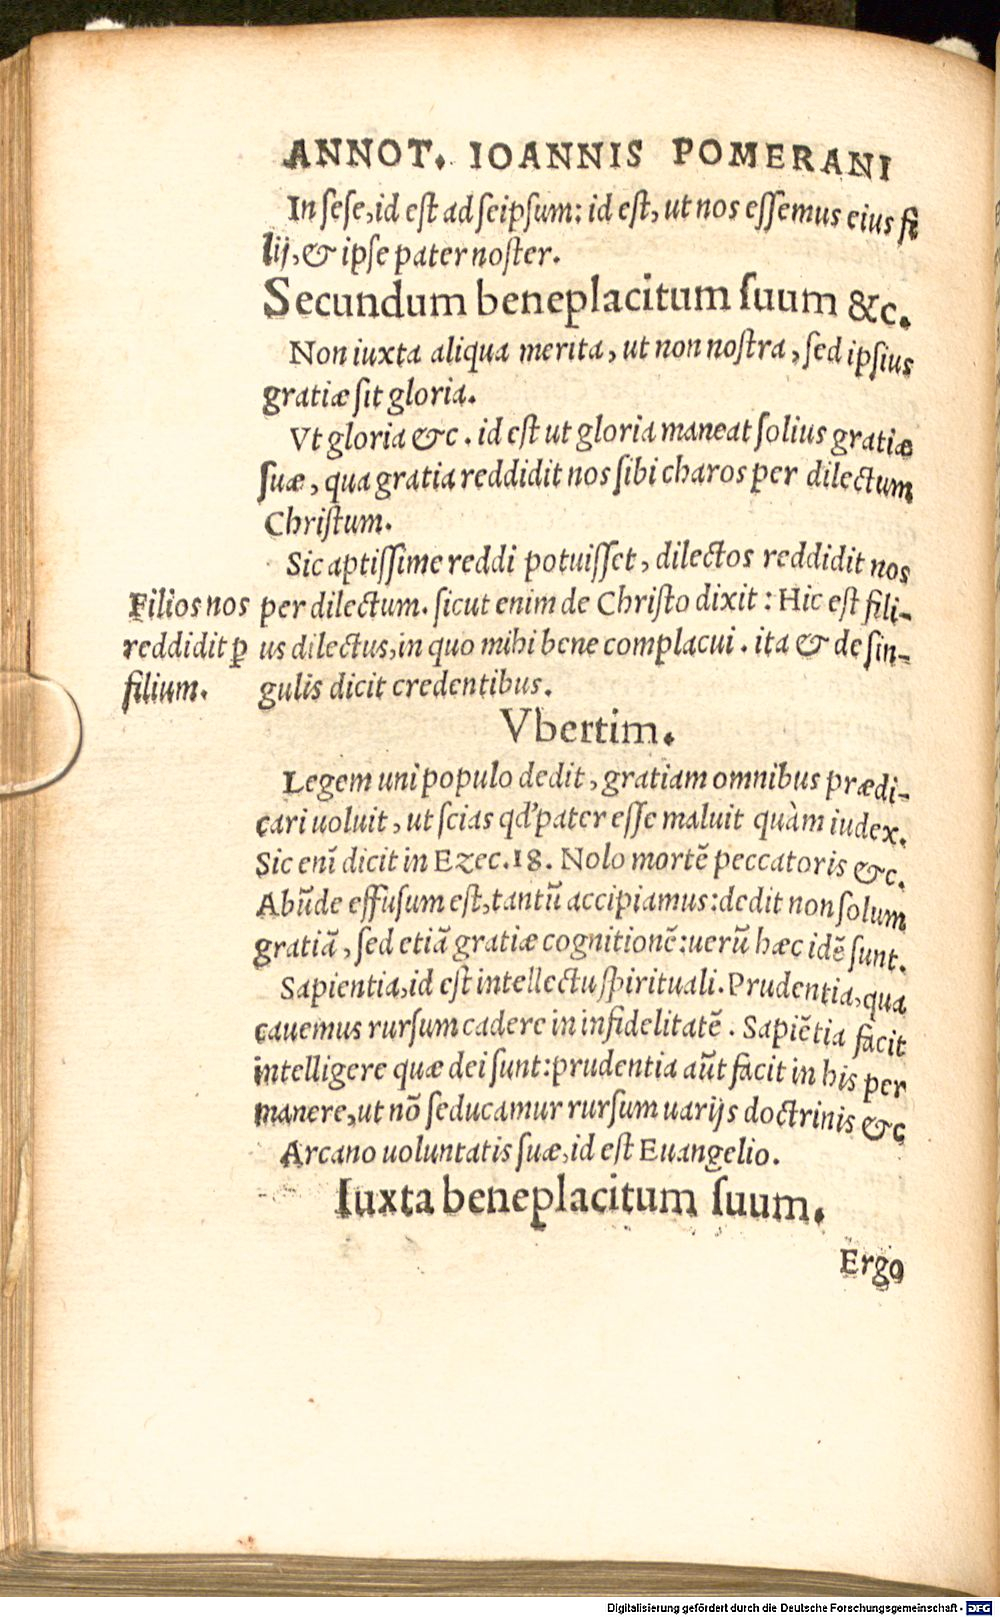 ANNOT. IOANNIS POMERANI
In ſeſe, id eſt ad ſeipſum: id eſt, ut nos eſſemus eius fi
lij, & ipſe pater noſter.
Secundum beneplacitum ſuum &c.
Non iuxta aliqua merita, ut non noſtra, ſed ipſius
gratiæ ſit gloria.
Vt gloria &c. id eſt ut gloria maneat ſolius gratiæ
ſuæ, qua gratia reddidit nos ſibi charos per dilectum
Chriſtum.
Sic aptiſſime reddi potuiſſet, dilectos reddidit nos
Filios nos
reddidit ꝑ
filium.
per dilectum. ſicut enim de Chriſto dixit: Hic eſt fili-
us dilectus, in quo mihi bene complacui. ita & de ſin-
gulis dicit credentibus.
Vbertim.
Legem uni populo dedit, gratiam omnibus prædi-
cari uoluit, ut ſcias qd' pater eſſe maluit quàm iudex.
Sic enī dicit in Ezec. 18. Nolo mortē peccatoris &c.
Abūde effuſum eſt, tantū accipiamus: dedit non ſolum
gratiā, ſed etiā gratiæ cognitionē: uerū hæc idē ſunt.
Sapientia, id eſt intellectu ſpirituali. Prudentia, qua
cauemus rurſum cadere in infidelitatē. Sapiētia facit
intelligere quæ dei ſunt: prudentia aūt facit in his per
manere, ut nō ſeducamur rurſum uarijs doctrinis &c
Arcano uoluntatis ſuæ, id eſt Euangelio.
Iuxta beneplacitum ſuum.
Ergo
Digitalisierung gefördert durch die Deutsche Forschungsgemeinschaft - DFG